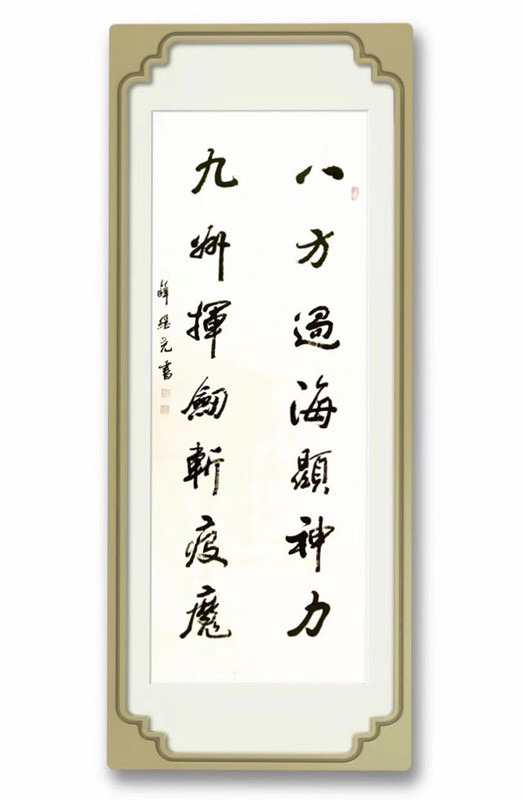 八方過海顯神力
九州揮劒斬疫魔
薛繼元書